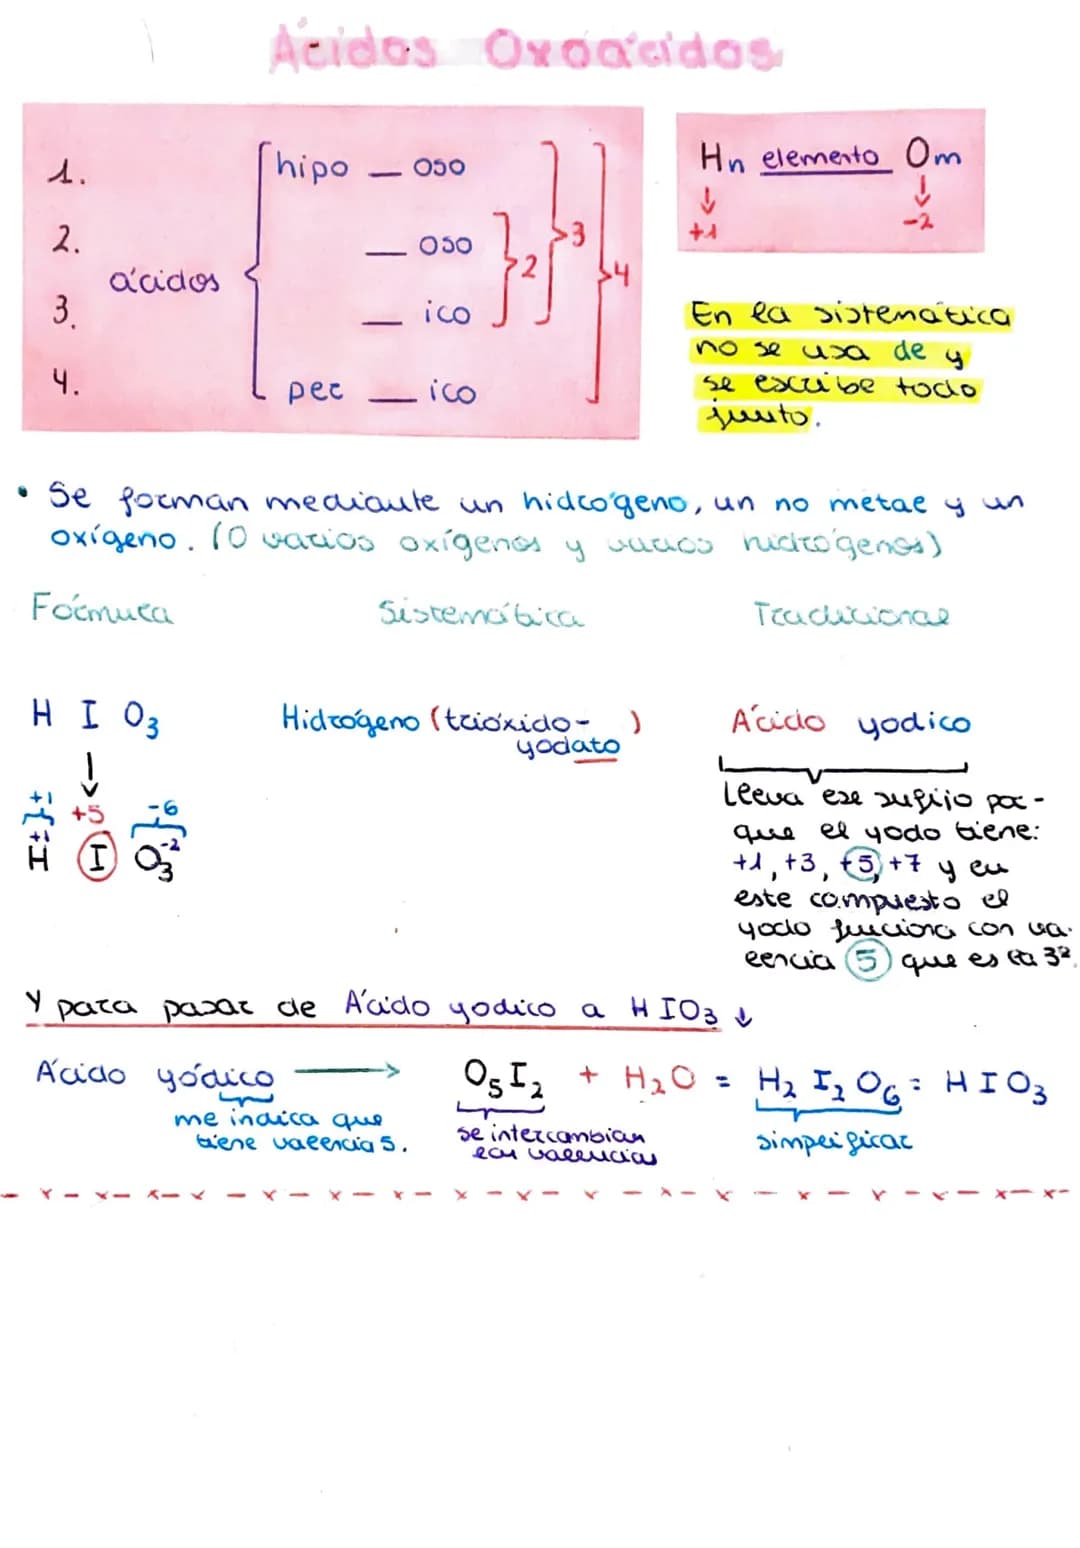 Ácidos Oxoácidos
1.
2.
3.
4.
ácidos
hipo — oso
— oso
— ico
per — ico
2
3
4
Hn elemento Om
+1
-2
En la sistemática
no se usa de y
se escribe todo
junto.
• Se forman mediante un hidrógeno, un no metal y un
oxígeno. (O varios oxígenos y varios hidrógenos)
Fórmula Sistemática Tradicional
H I O3
Hidrógeno (trióxido-
yodato)
Ácido yodico
+1 +5 -6
+1 -2
H I O3
Lleva ese sufijo por-
que el yodo tiene:
+1, +3, +5, +7 y en
este compuesto el
yodo funciona con va-
lencia 5 que es la 3ª.
Y para pasar de Ácido yodico a HIO3 ↓
Ácido yódico → O5I2 + H2O = H2I2O6 = HIO3
me indica que
tiene valencia 5.
se intercambian
las valencias
simplificar